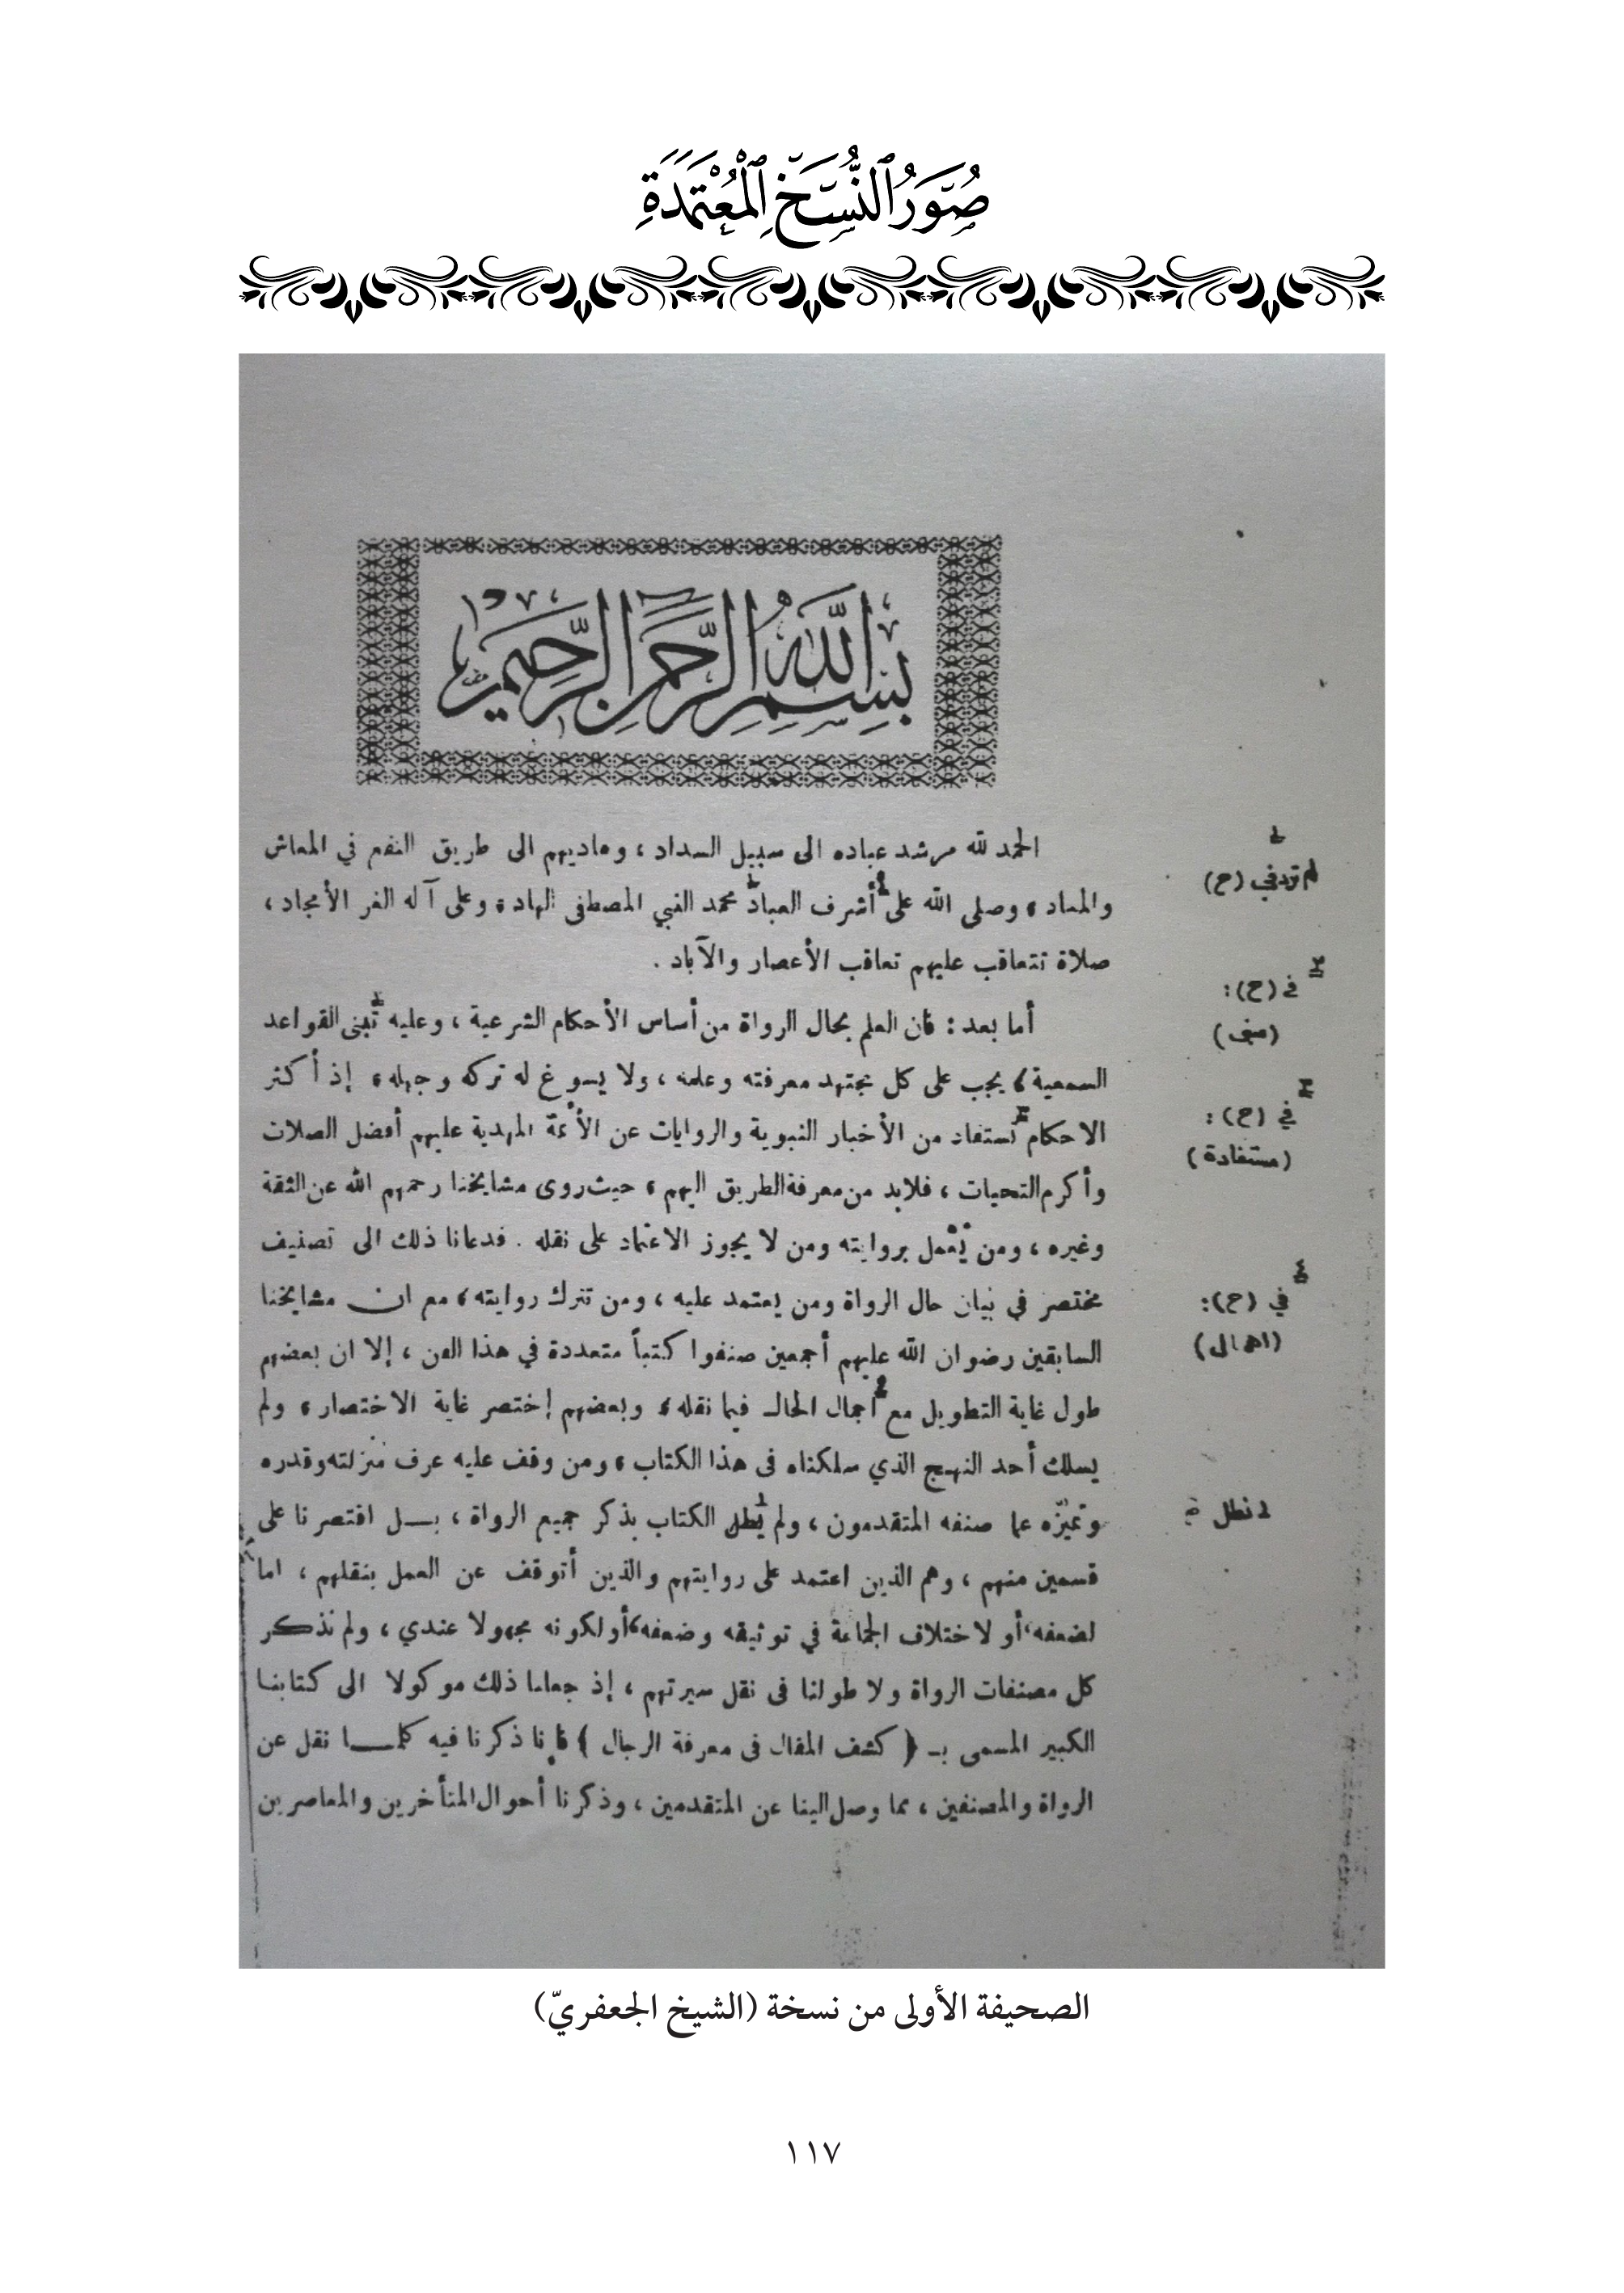 صُوَرُ النُّسَخِ الْمُعْتَمَدَةِ
بِسْمِ اللهِ الرَّحْمنِ الرَّحِيمِ
الحمد لله مرشد عباده الى سبيل السداد ، وهاديهم الى طريق النفع في المعاش
والمعاد ، وصلى الله على أشرف العباد محمد النبي المصطفى الهاد ، وعلى آله الغر الأمجاد ،
صلاة تتعاقب عليهم تعاقب الأعصار والآباد .
أما بعد : فان العلم بحال الرواة من أساس الأحكام الشرعية ، وعليه تبنى القواعد
السمعية ، يجب على كل مجتهد معرفته وعلمه ، ولا يسوغ له تركه وجهله ، إذ أكثر
الاحكام تستفاد من الأخبار النبوية والروايات عن الأئمة المهدية عليهم أفضل الصلات
وأكرم التحيات ، فلابد من معرفة الطريق اليهم ، حيث روى مشايخنا رحمهم الله عن الثقة
وغيره ، ومن يعمل بروايته ومن لا يجوز الاعتماد على نقله . فدعانا ذلك الى تصنيف
مختصر في بيان حال الرواة ومن يعتمد عليه ، ومن تترك روايته ، مع ان مشايخنا
السابقين رضوان الله عليهم أجمعين صنفوا كتباً متعددة في هذا الفن ، إلا ان بعضهم
طول غاية التطويل مع اجمال الحال فيما نقله ، وبعضهم إختصر غاية الاختصار ، ولم
يسلك أحد النهج الذي سلكناه في هذا الكتاب ، ومن وقف عليه عرف منزلته وقدره
وتميّزه عما صنفه المتقدمون ، ولم يطل الكتاب بذكر جميع الرواة ، بــل اقتصرنا على
قسمين منهم ، وهم الذين اعتمد على روايتهم والذين أتوقف عن العمل بنقلهم ، اما
لضعفه ، أو لاختلاف الجماعة في توثيقه وضعفه ، أو لكونه مجهولا عندي ، ولم نذكــر
كل مصنفات الرواة ولا طولنا في نقل سيرتهم ، إذ جعلنا ذلك موكولا الى كتابنا
الكبير المسمى بـ ( كشف المقال في معرفة الرجال ) فانا ذكرنا فيه كلمــا نقل عن
الرواة والمصنفين ، مما وصل الينا عن المتقدمين ، وذكرنا أحوال المتأخرين والمعاصرين
١
لم ترد في (ح)
٢
في (ح):
٣
في (ح):
(مستفادة)
٤
في (ح):
(اهمال)
نطل
الصحيفة الأولى من نسخة (الشيخ الجعفريّ)
١١٧